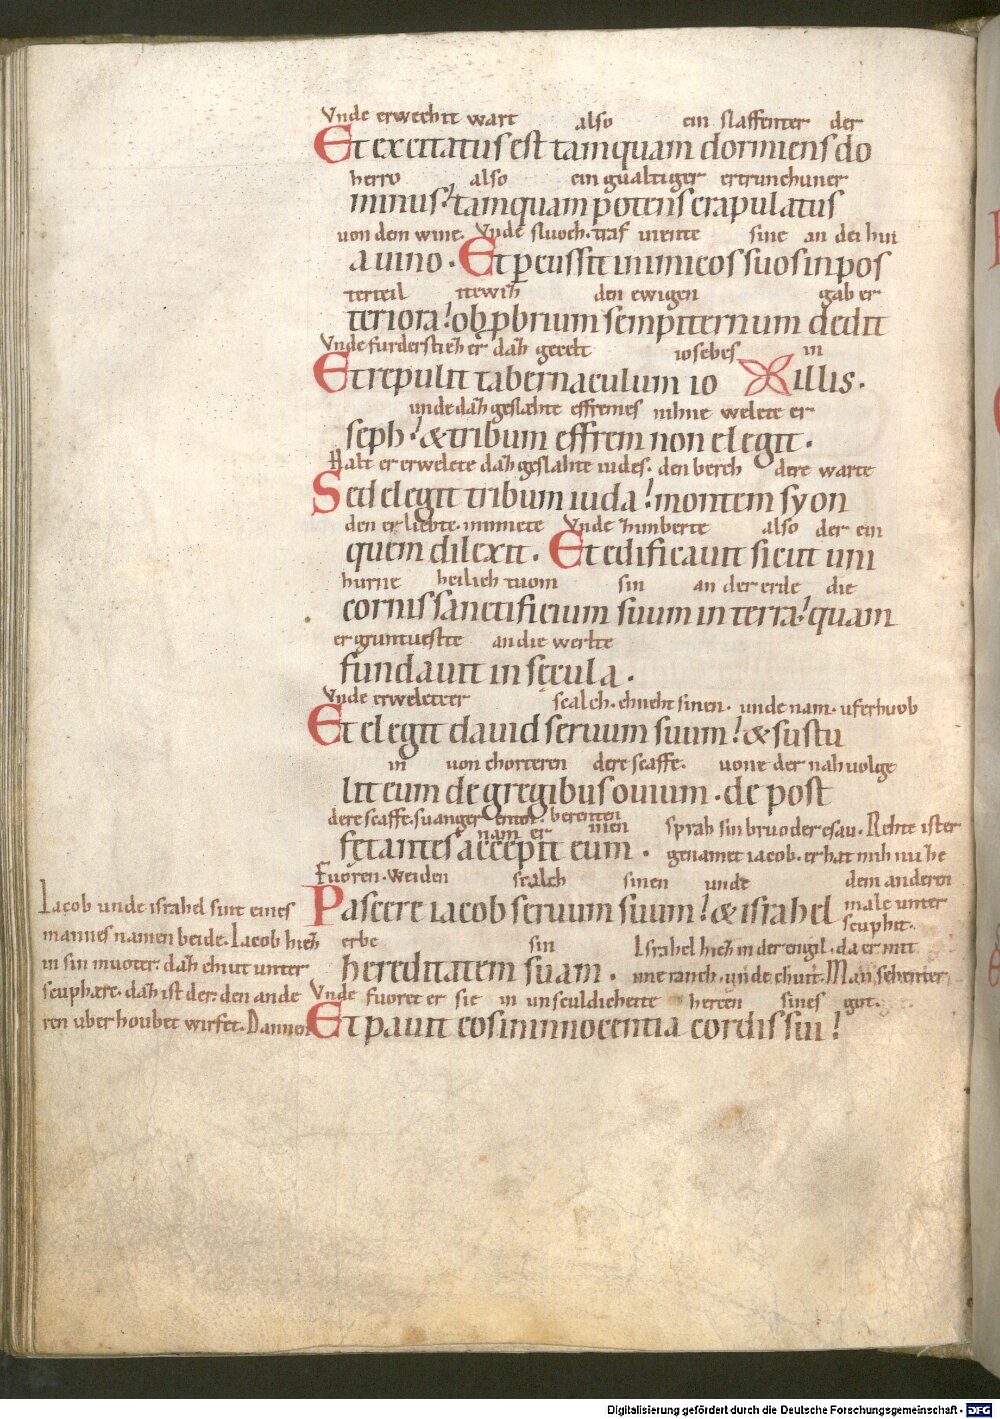 Vnde erwechit wart also ein slaffenter der
Et excitatus est tamquam dormiens do
herro also ein gualtiger ertrunchuner
minus. tamquam potens crapulatus
uon dem wine. Vnde sluoch. traf uiente sine an dei hin
a uino. Et ꝑcussit inimicos suos in pos
terteil itewiʒ den ewigen gab er
teriora. obꝓbrium sempiternum dedit
Vnde furderstieʒ er daʒ gecelt iosebes in
Et repulit tabernaculum io illis.
unde daʒ geslahte effremes nihne welete er
seph. & tribum effrem non elegit.
Halt er erwelete daʒ geslahte iudes. den berch dere warte
Sed elegit tribum iuda. montem syon
den er liebte. minnete Vnde himberte also der ein
quem dilexit. Et edificauit sicut uni
hurne heilich tuom sin an der erde die
cornis sanctificium suum in terra. quam
er gruntueste an die werlte
fundauit in secula.
Vnde erweleter scalch. chneht sinen. unde nam. uf erhuob
Et elegit dauid seruum suum. & sustu
in uon chorteren dere scaffe. uone der nahuolge
lit eum de gregibus ouium. de post
dere scaffe. suanger berenten
nam er inen sprah sin bruoder esau. Rehte ist er
fetantes accepit eum. genamet iacob. er hat mih nu he
Fuoren. Weiden scalch sinen unde dem anderen
Iacob unde israhel sint eines
Pascere iacob seruum suum. & israhel male unter
scuphit.
mannes namen beide. Iacob hieʒ erbe sin Israhel hieʒ in der engil. da er mit
in sin muoter. daʒ chiut unter
hereditatem suam. ime ranch. unde chuit. Man sehenter
scuphare. daʒ ist der. den ande Vnde fuoret er sie in unsculdicheite hercen sines got.
ren uber houbet wirfet. Dannon
Et pauit eos in innocentia cordis sui.
Digitalisierung gefördert durch die Deutsche Forschungsgemeinschaft - DFG